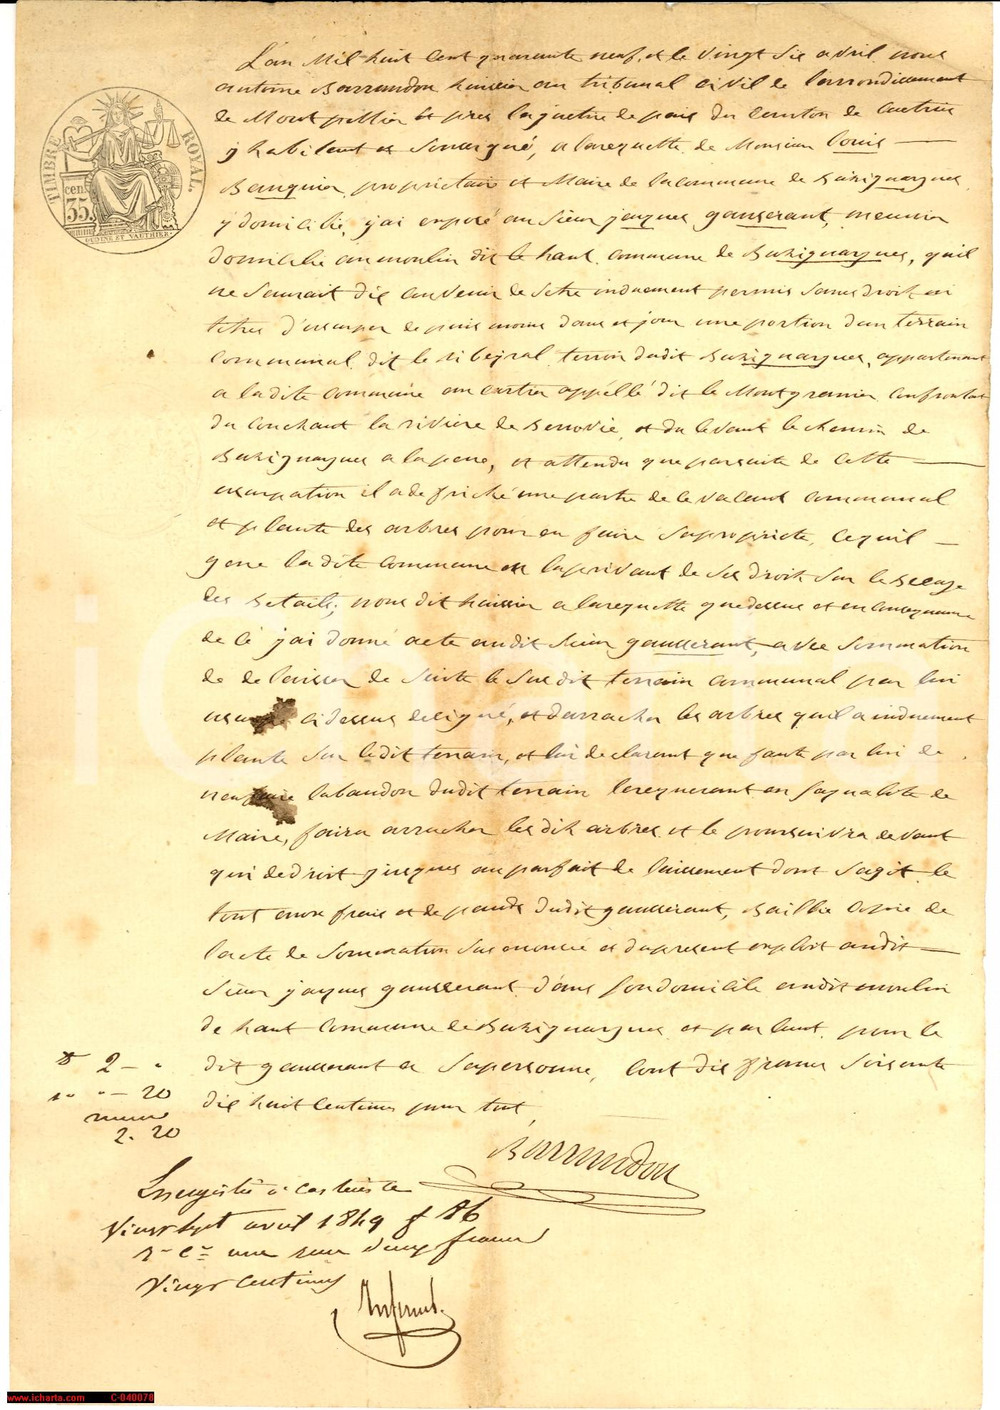 TIMBRE ROYAL.
cen.
35.
L'an Mil huit cent quarante neuf, et le vingt six avril nous
antoine Barrandon huissier au tribunal civil de larrondissement
de Montpellier et pres la justice de paix du canton de Castries
y habitant et soussigné, a la requette de Monsieur Louis
Banquier, propriétaire et Maire de la commune de Buzignargues,
y domicilié, j'ai exposé au sieur jaques gausserant, meunier
domicilié au moulin dit le haut, commune de Buzignargues, qu'il
ne saurait dis convenir de setre induement permis sans droit ni
titres d'usurper depuis moins dans et jour une portion dun terrain
communal dit le ribeyral, terroir dudit Buzignargues, appartenant
a la dite commune au cartier appéllé dit le Montgranier confrontant
du couchant la rivière de Benovie, et du levant le chemin de
Buzignargues a la , et attendu que parsuite de cette
usurpation il a defriché une partie de ce vacant communal
et planté des arbres pour en faire sa propriete, ce quil
gene la dite commune en la privant de ses droits sur le
des betails; nous dit huissier a la requette que dessus et en consequence
de ce j'ai donné acte audit sieur gausserant, avec sommation
de delaisser de suite le sus dit terrain communal par lui
usurpé ci dessus designé, et darracher les arbres quil a induement
planté sur le dit terrain, et lui declarant que faute par lui de
labandon dudit terrain le requerant en sa qualité de
Maire, faira arracher les dits arbres et le poursuivra devant
qui de droit jusques au parfait delaissement dont sagit le
tout aux frais et depends dudit gausserant, Baillé copie de
lacte de sommation sus enoncé et du present exploit audit
sieur jaques gausserant dans son domicile audit moulin
de haut commune de Buzignargues et parlant pour le
dit gausserant a sa personne, Cout dix francs soixante
dix huit centimes pour tout,
2 -
20
2. 20
Barrandon
Enregistré à Castries le
Vingt sept avril 1849 f 86
deux francs
Vingt centimes
www.icharta.com C-040078